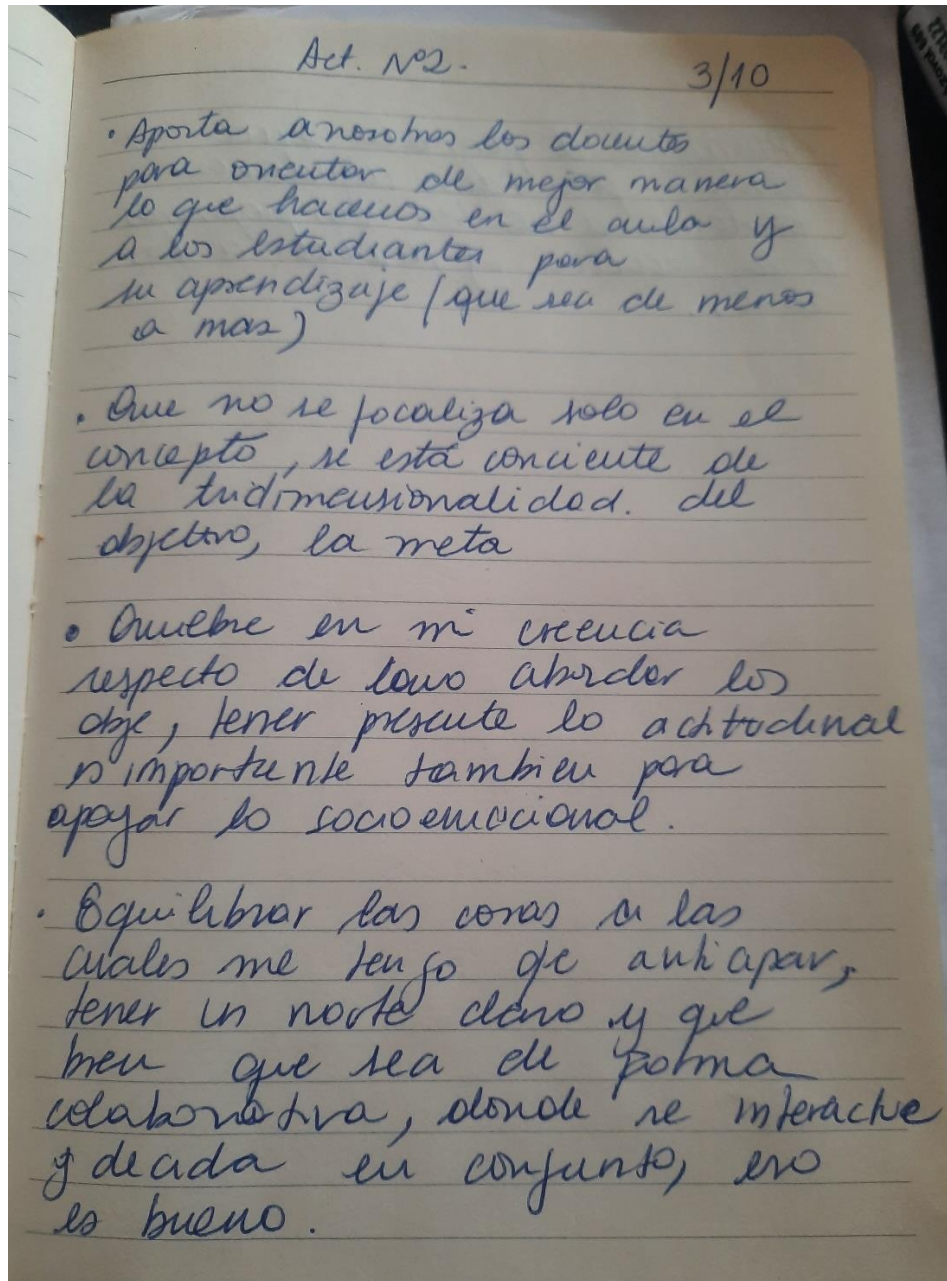 Act. Nº2.
3/10
• Aporta a nosotros los docentes
para orientar de mejor manera
lo que hacemos en el aula y
a los estudiantes para
su aprendizaje (que sea de menos
a mas)
• Que no se focaliza solo en el
concepto, se está conciente de
la tridimensionalidad. del
objetivo, la meta
• Quiebre en mi creencia
respecto de como abordar los
obje, tener presente lo actitudinal
es importante tambien para
apoyar lo socioemocional.
• Equilibrar las cosas a las
cuales me tengo qe anticipar,
tener un norte claro y que
bien que sea de forma
colaborativa, donde se interactue
y decida en conjunto, eso
es bueno.